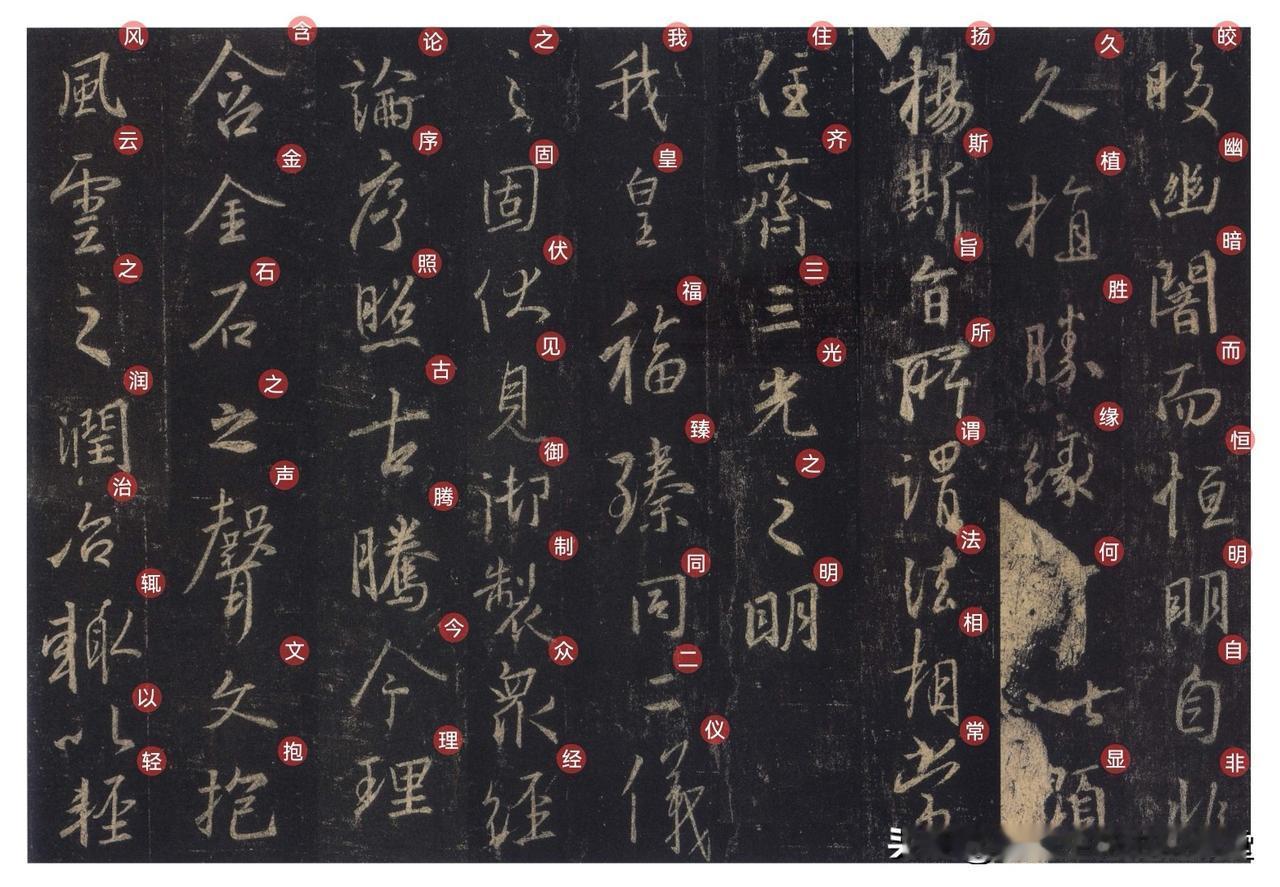 皎幽闇而恒明自非
皎幽暗而恒明自非
久植勝緣以顯
久植胜缘何显
揚斯旨所謂法相常
扬斯旨所谓法相常
住齊三光之明
住齐三光之明
我皇福臻同二儀
我皇福臻同二仪
之固伏見御製眾經
之固伏见御制众经
論序照古騰今理
论序照古腾今理
含金石之聲文抱
含金石之声文抱
風雲之潤治輒以輕
风云之润治辄以轻